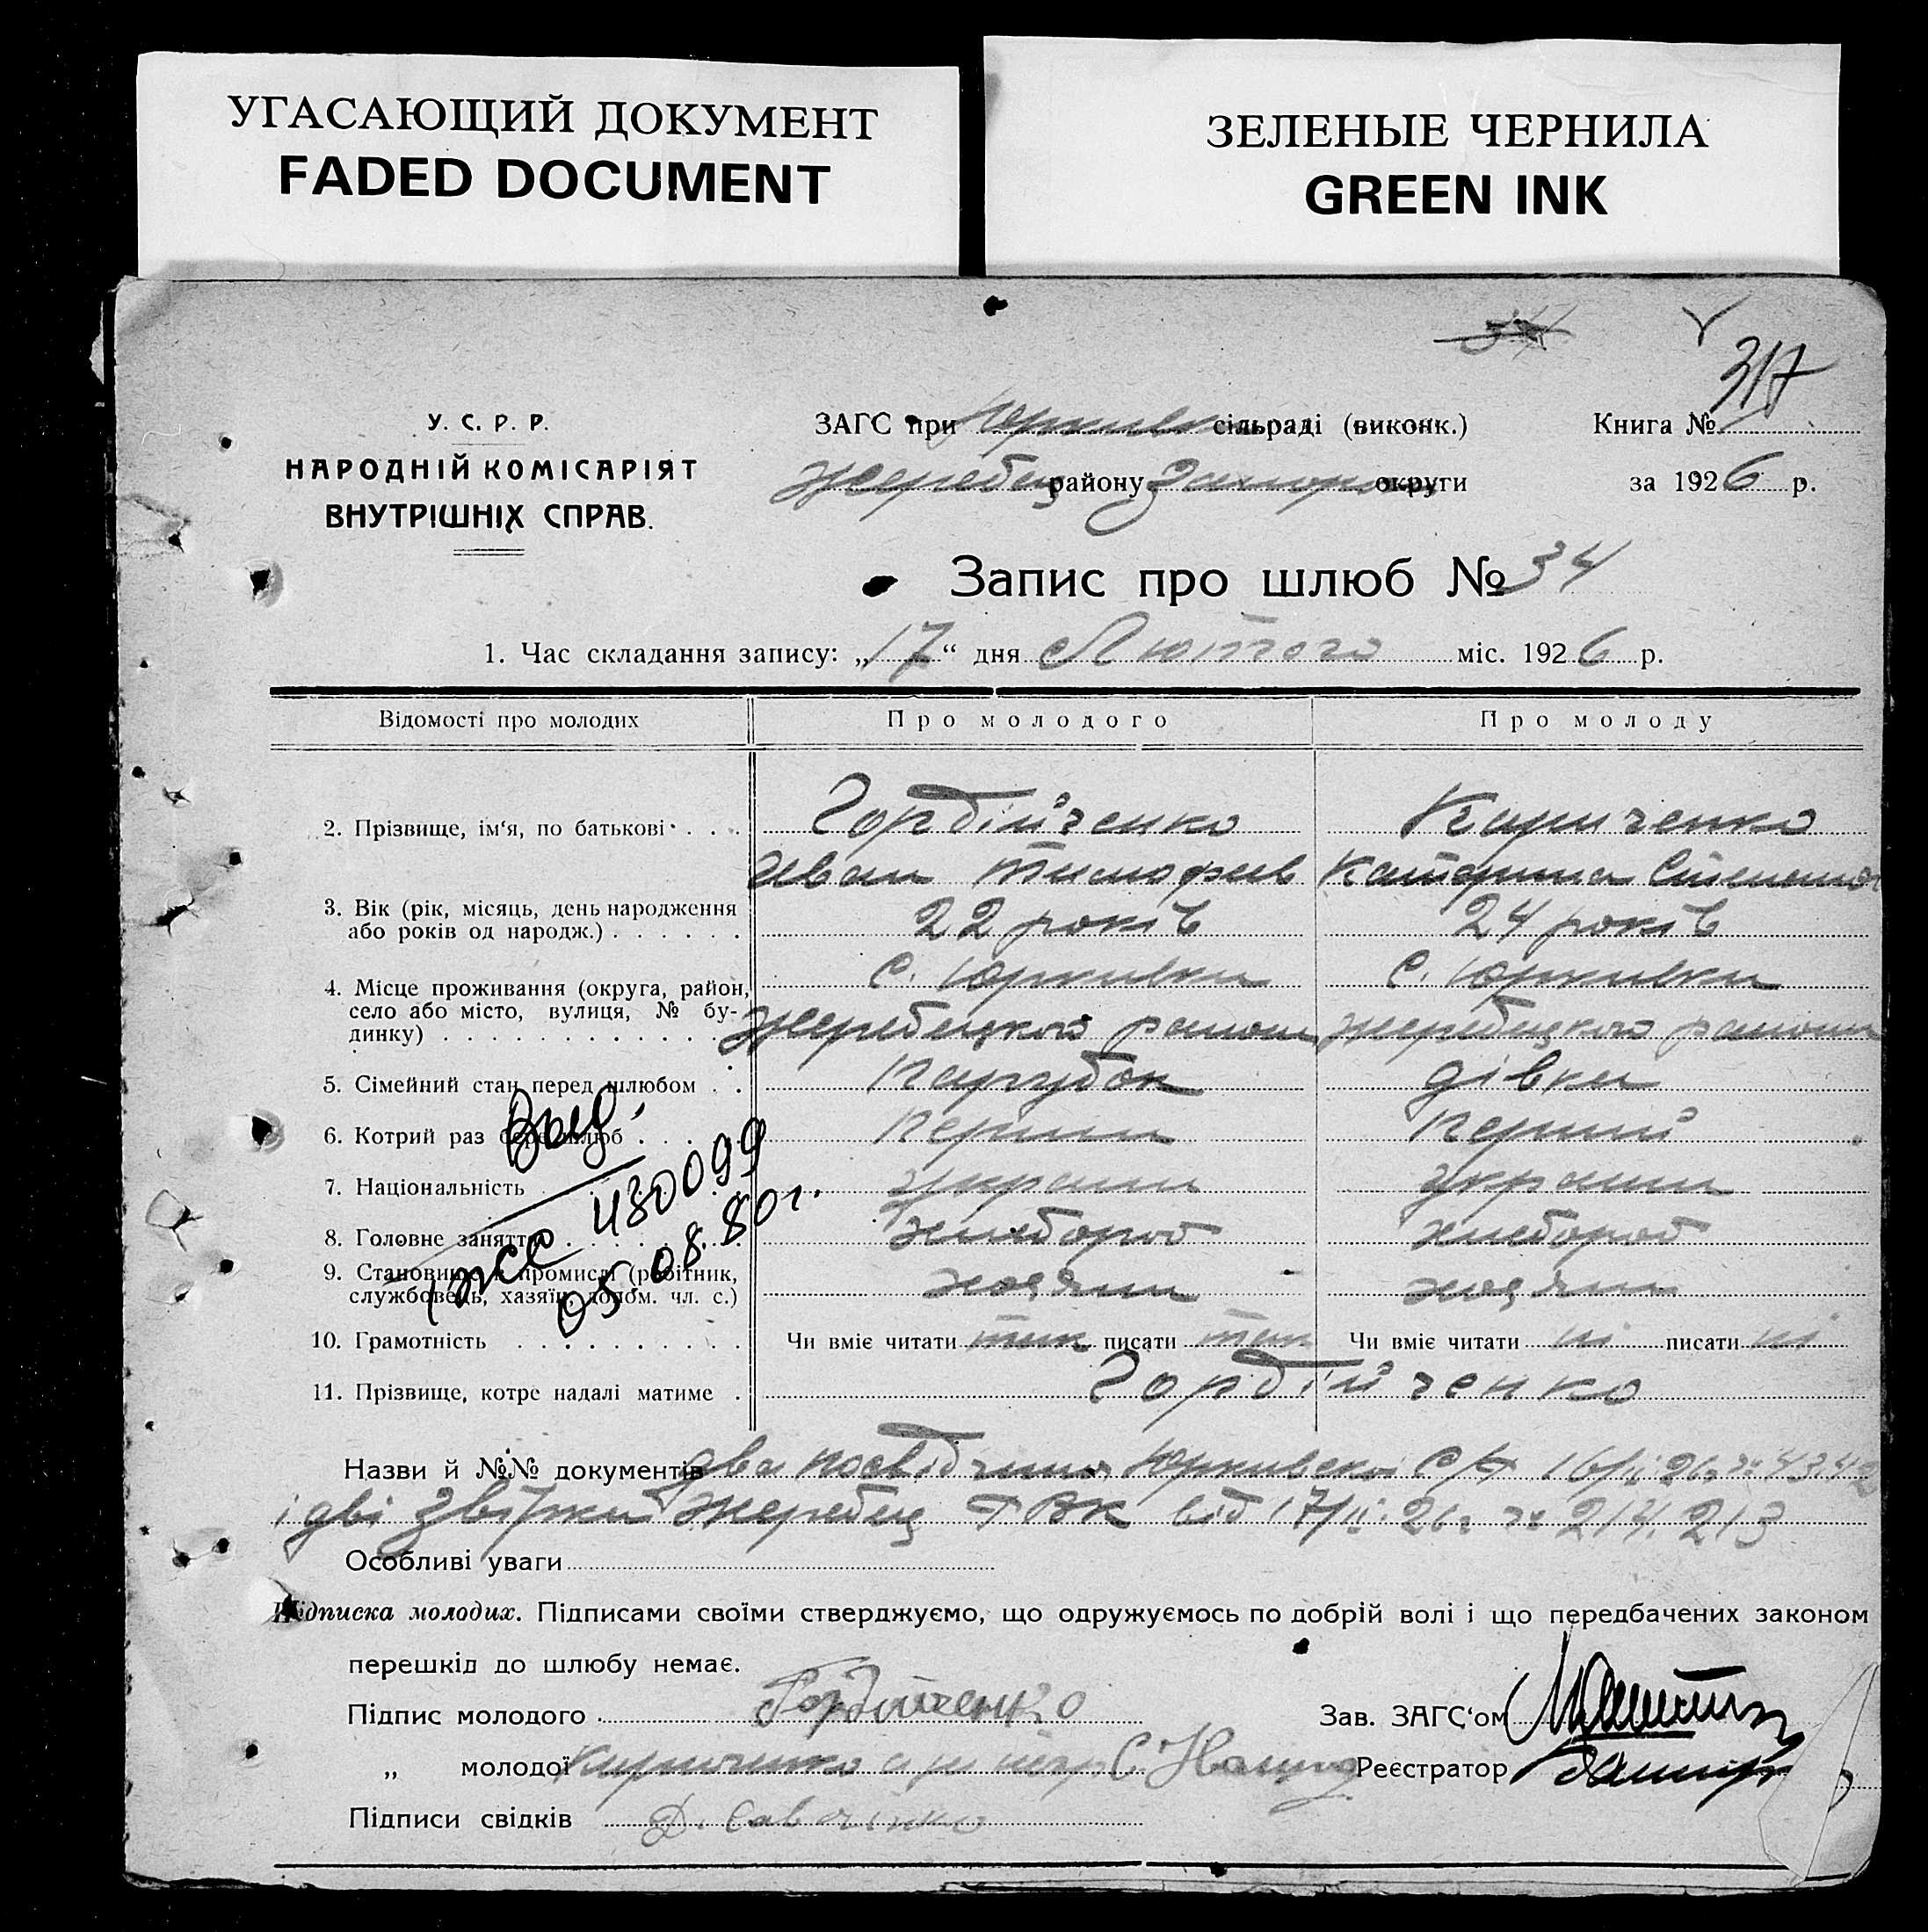 УГАСАЮЩИЙ ДОКУМЕНТ
FADED DOCUMENT
ЗЕЛЕНЫЕ ЧЕРНИЛА
GREEN INK
317
У. С. Р. Р.
НАРОДНІЙ КОМІСАРІЯТ
ВНУТРІШНІХ СПРАВ.
ЗАГС при сільраді (виконк.)
Жеребец району Запорож округи
Книга №
за 1926 р.
Запис про шлюб № 34
1. Час складання запису: „17“ дня Лютого міс. 1926 р.
Відомості про молодих Про молодого Про молоду
2. Прізвище, ім‘я, по батькові . . . Гордійченко Кириченко
Иван Тимофеев Катерина Степанов
3. Вік (рік, місяць, день народження
або років од народж.) . . . . . . 22 років 24 років
4. Місце проживання (округа, район, с. Юркивки с. Юркивки
село або місто, вулиця, № бу-
динку) . . . . . . . . . . . . Жеребецкого района Жеребецкого района
5. Сімейний стан перед шлюбом . . Парубок дівка
6. Котрий раз бере шлюб . . . . . Перший Перший
7. Національність украин украин
8. Головне заняття хлебороб хлебороб
9. Становище в промислі (робітник,
службовець, хазяїн, допом. чл. с.) хозяин хозяин
10. Грамотність . . . . . . . . . . Чи вміє читати так писати так Чи вміє читати ні писати ні
11. Прізвище, котре надалі матиме . Гордійченко
Выд.
430099
05.08.80г.
Назви й №№ документів два посвідчиня Юркивской С/р 16/ІІ 26г № 43.42
і дві звізки Жеребец РВК від 17/ІІ 26г № 214. 213
Особливі уваги
Підписка молодих. Підписами своїми стверджуємо, що одружуємось по добрій волі і що передбачених законом
перешкід до шлюбу немає.
Підпис молодого Гордійченко Зав. ЗАГС‘ом
„ молодої Кириченко Реєстратор
Підписи свідків Д. Савченко